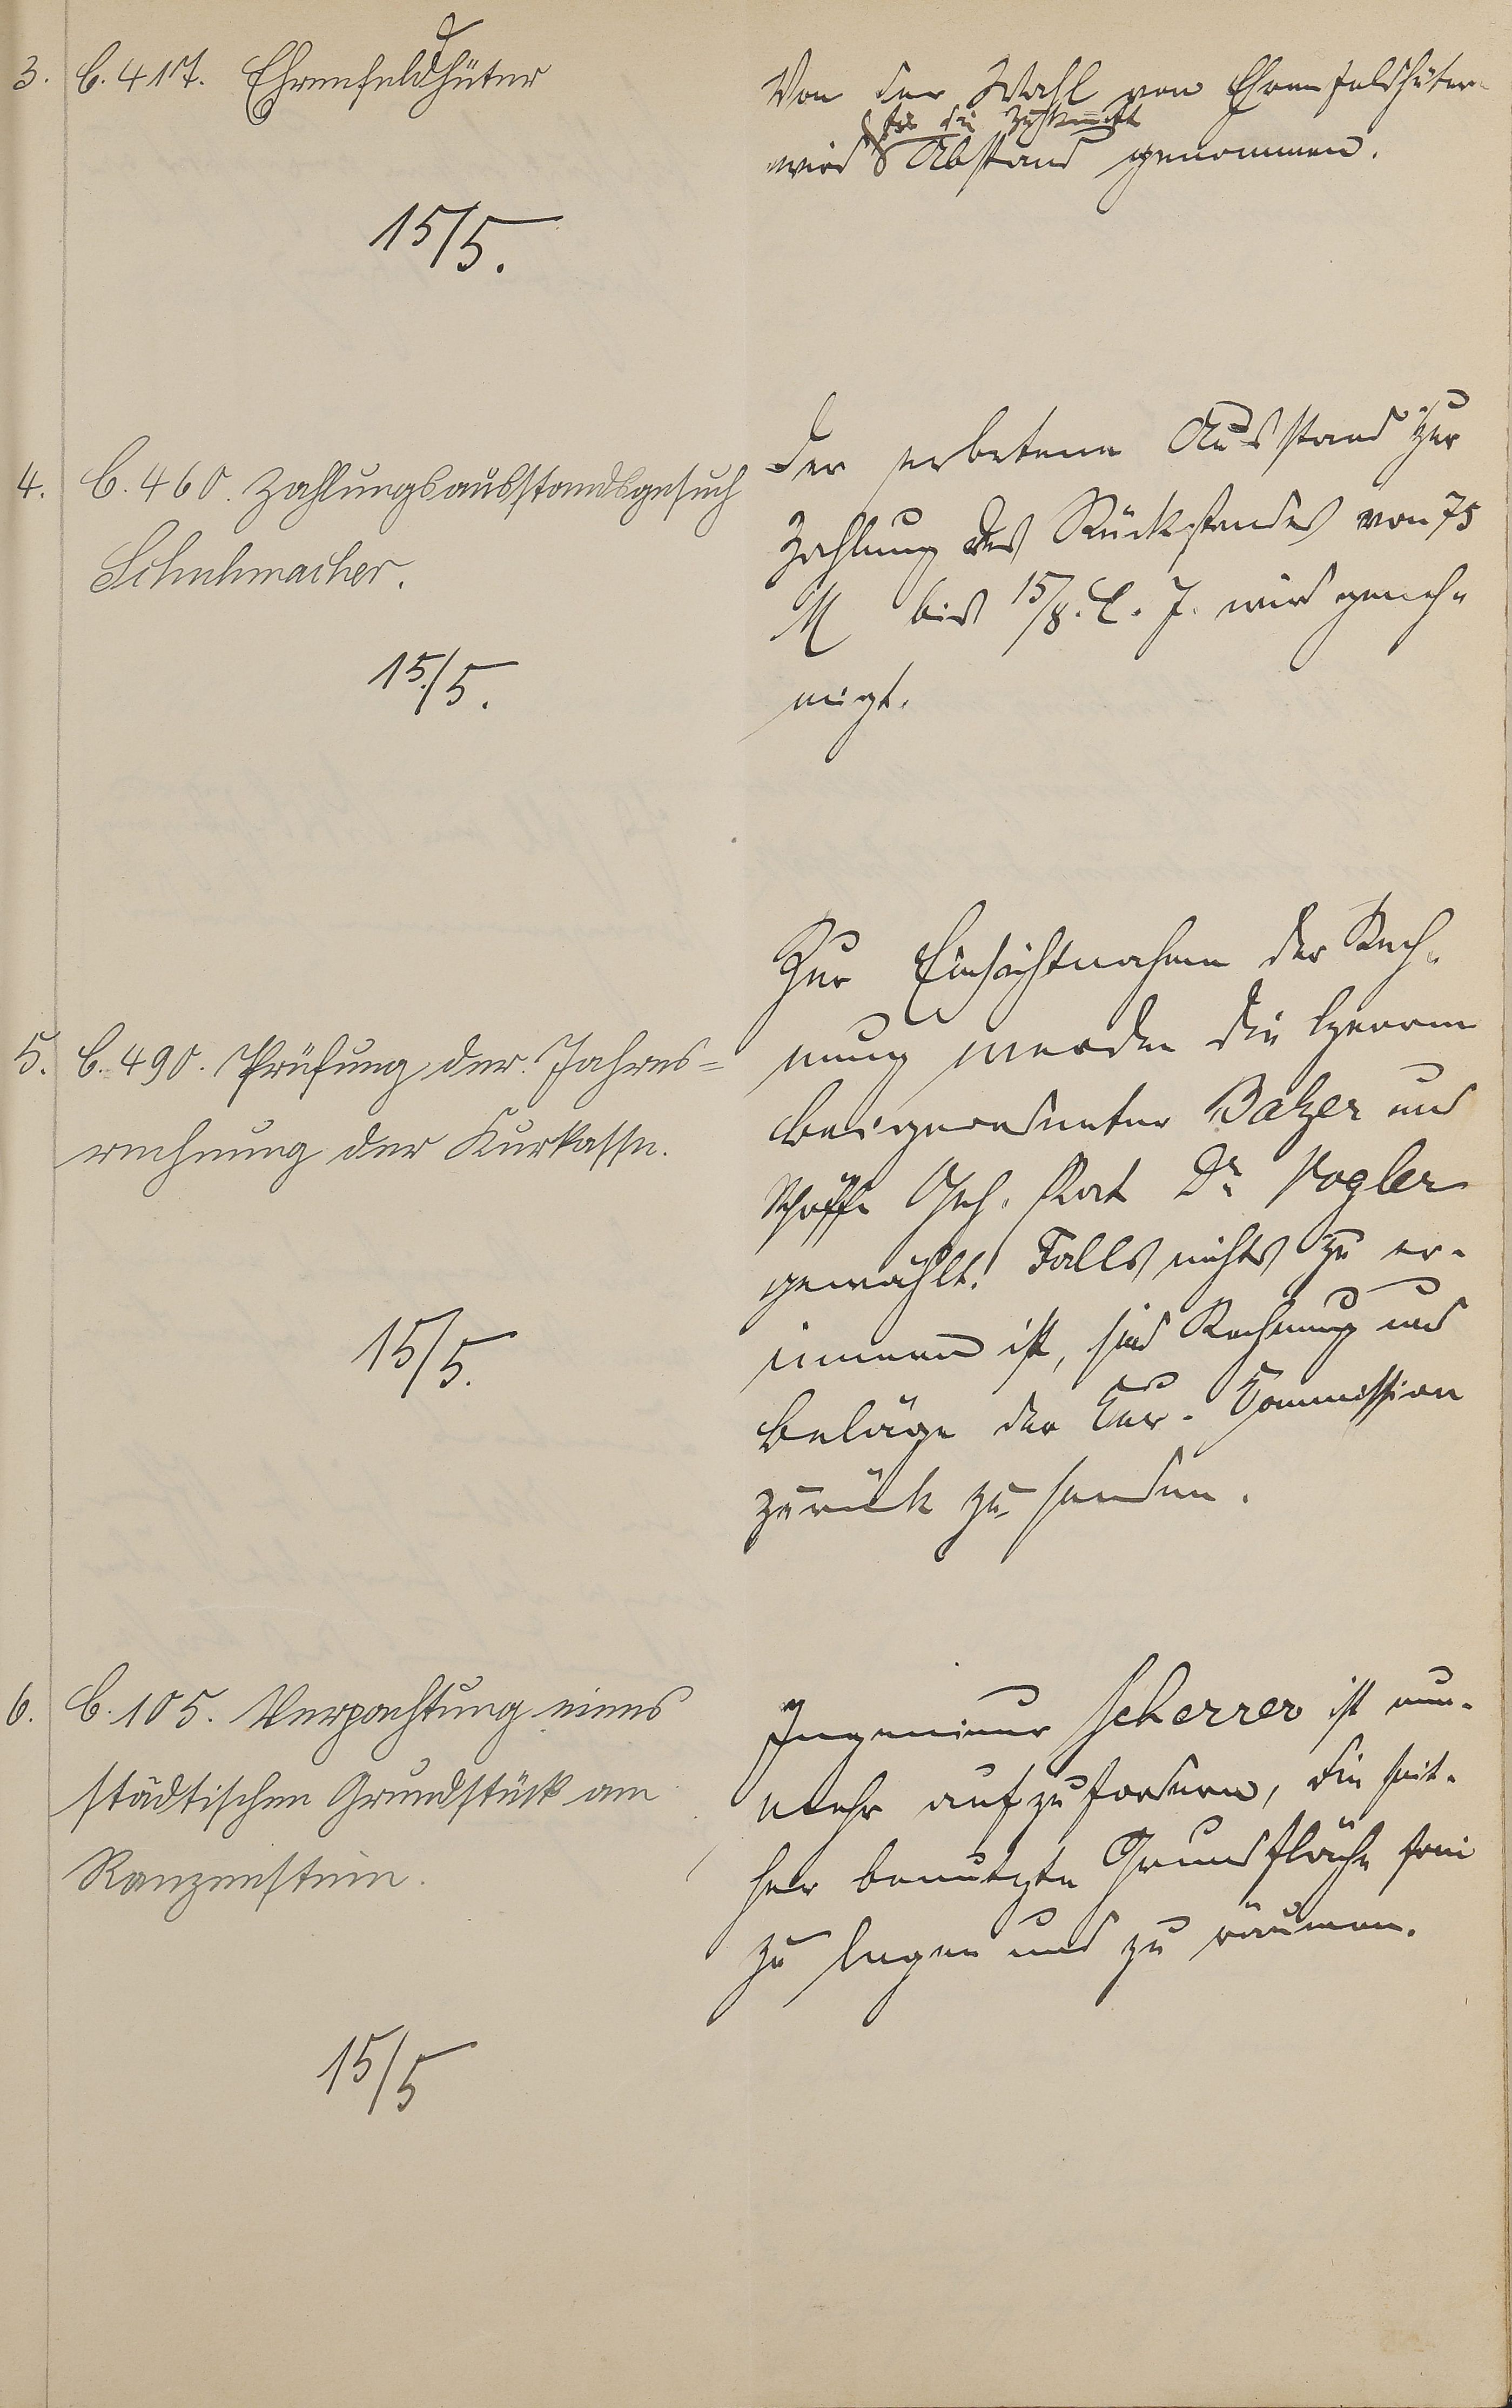 3. C. 417. Ehrenfeldhüter
15/5.
Von der Wahl von Ehrenfeldhüter
für die Zukunft
wird Abstand genommen.
4. C. 460. Zahlungsausstandsgesuch
Schuhmacher.
15/5.
Der erbetene Ausstand zur
Zahlung des Rückstandes von 75
M bis 15/8. l. J. wird geneh-
migt.
5. C. 490. Prüfung der Jahres=
rechnung der Kurkasse.
15/5.
Zur Einsichtnahme der Rech-
nung werden die Herren
Beigeordneter Balzer und
Schöffe Geh. Rat Dr. Vogler
gewählt. Falls nichts zu er-
innern ist, sind Rechnung und
Beläge der Kur-Commission
zurück zu senden.
6. C. 105. Verpachtung eines
städtischen Grundstück am
Ranzenstein.
15/5
Ingenieur Scherrer ist nun-
mehr aufzufordern, die seit-
her benutzte Grundfläche frei
zu legen und zu räumen.